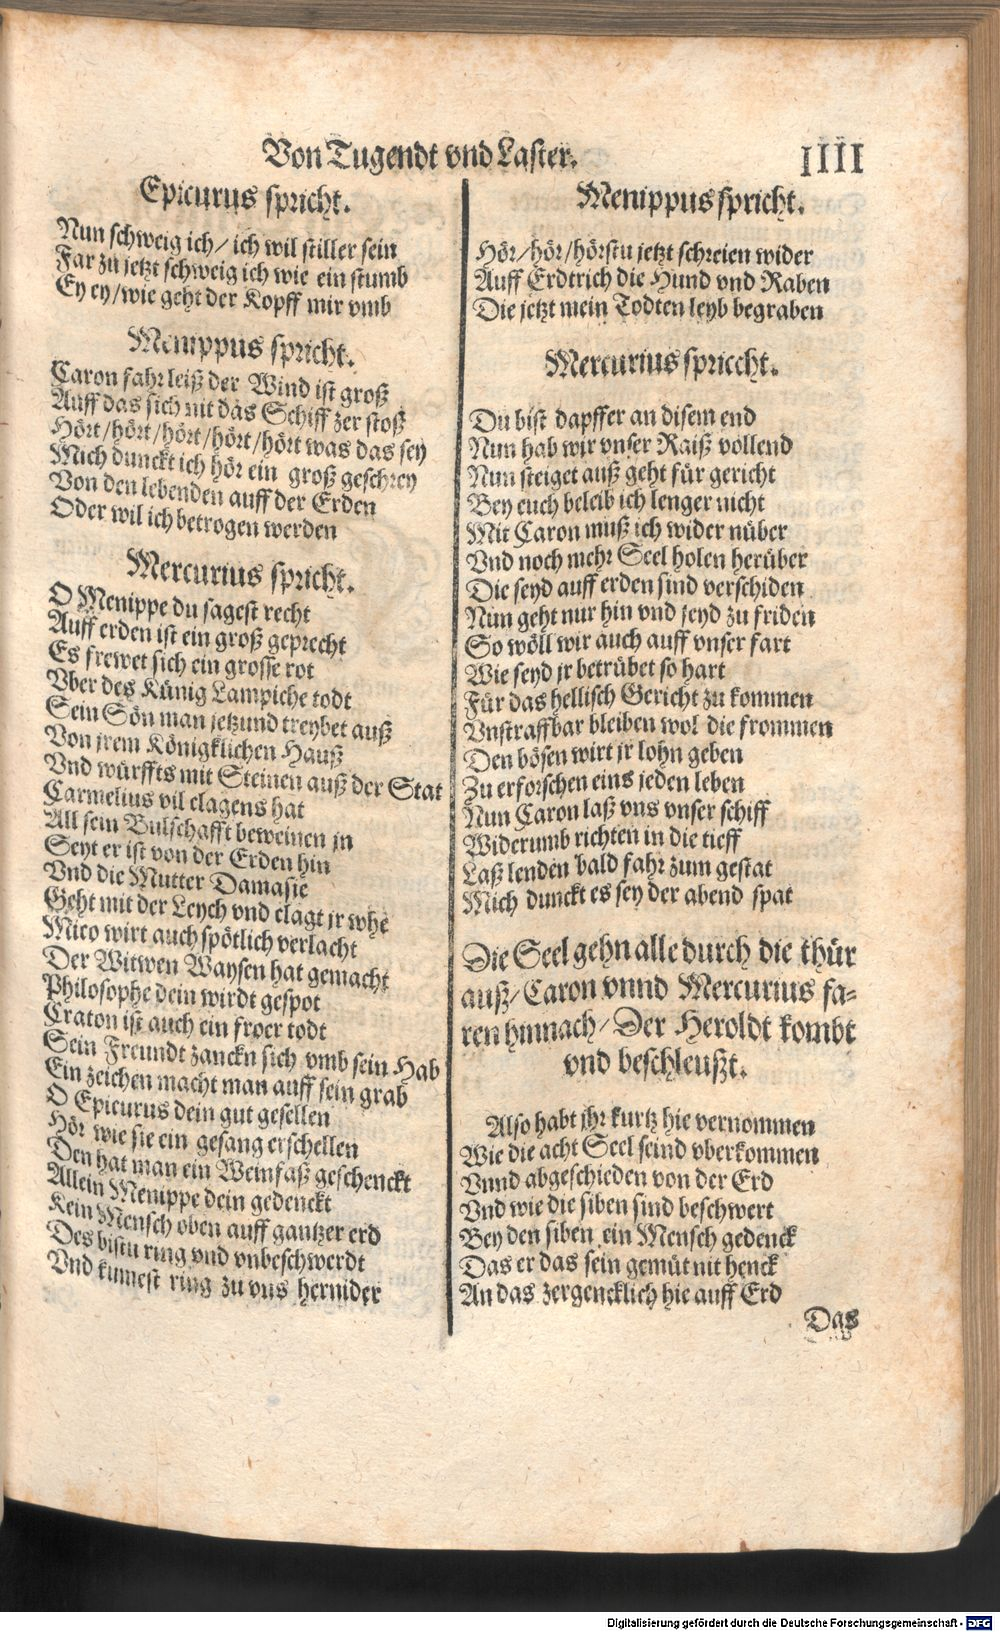 Von Tugendt vnd Laster. IIII
Epicurus spricht.
Nun schweig ich/ ich wil stiller sein
Far zu jetzt schweig ich wie ein stumb
Ey ey/wie geht der Kopff mir vmb
Menippus spricht.
Caron fahr leiß der Wind ist groß
Auff das sich nit das Schiff zer stoß
Hört/hört/hört/hört/hört was das sey
Mich dunckt ich hör ein groß geschrey
Von den lebenden auff der Erden
Oder wil ich betrogen werden
Mercurius spricht.
O Menippe du sagest recht
Auff erden ist ein groß geprecht
Es frewet sich ein grosse rot
Vber des Künig Lampiche todt
Sein Sön man jetzund treybet auß
Von jrem Königklichen Hauß
Vnd würffts mit Steinen auß der Stat
Carmelius vil clagens hat
All sein Bulschafft beweinen jn
Seyt er ist von der Erden hin
Vnd die Mutter Damasie
Geht mit der Leych vnd clagt jr whe
Mico wirt auch spötlich verlacht
Der Witwen Waysen hat gemacht
Philosophe dein wirdt gespot
Craton ist auch ein froer todt
Sein Freundt zanckn sich vmb sein Hab
Ein zeichen macht man auff sein grab
O Epicurus dein gut gesellen
Hör wie sie ein gesang erschellen
Den hat man ein Weinfaß geschenckt
Allein Menippe dein gedenckt
Kein Mensch oben auff gantzer erd
Des bistu ring vnd vnbeschwerdt
Vnd kumest ring zu vns hernider
Menippus spricht.
Hör/hör/hörstu jetzt schreien wider
Auff Erdtrich die Hund vnd Raben
Die jetzt mein Todten leyb begraben
Mercurius spriccht.
Du bist dapffer an disem end
Nun hab wir vnser Raiß vollend
Nun steiget auß geht für gericht
Bey euch beleib ich lenger nicht
Mit Caron muß ich wider nüber
Vnd noch mehr Seel holen herüber
Die seyd auff erden sind verschiden
Nun geht nur hin vnd seyd zu friden
So wöll wir auch auff vnser fart
Wie seyd jr betrübet so hart
Für das hellisch Gericht zu kommen
Vnstraffbar bleiben wol die frommen
Den bösen wirt jr lohn geben
Zu erforschen eins jeden leben
Nun Caron laß vns vnser schiff
Widerumb richten in die tieff
Laß lenden bald fahr zum gestat
Mich dunckt es sey der abend spat
Die Seel gehn alle durch die thür
auß/ Caron vnnd Mercurius fa-
ren hinnach/ Der Heroldt kombt
vnd beschleußt.
Also habt jhr kurtz hie vernommen
Wie die acht Seel seind vberkommen
Vnnd abgeschieden von der Erd
Vnd wie die siben sind beschwert
Bey den siben ein Mensch gedenck
Das er das sein gemüt nit henck
An das zergencklich hie auff Erd
Das
Digitalisierung gefördert durch die Deutsche Forschungsgemeinschaft - DFG